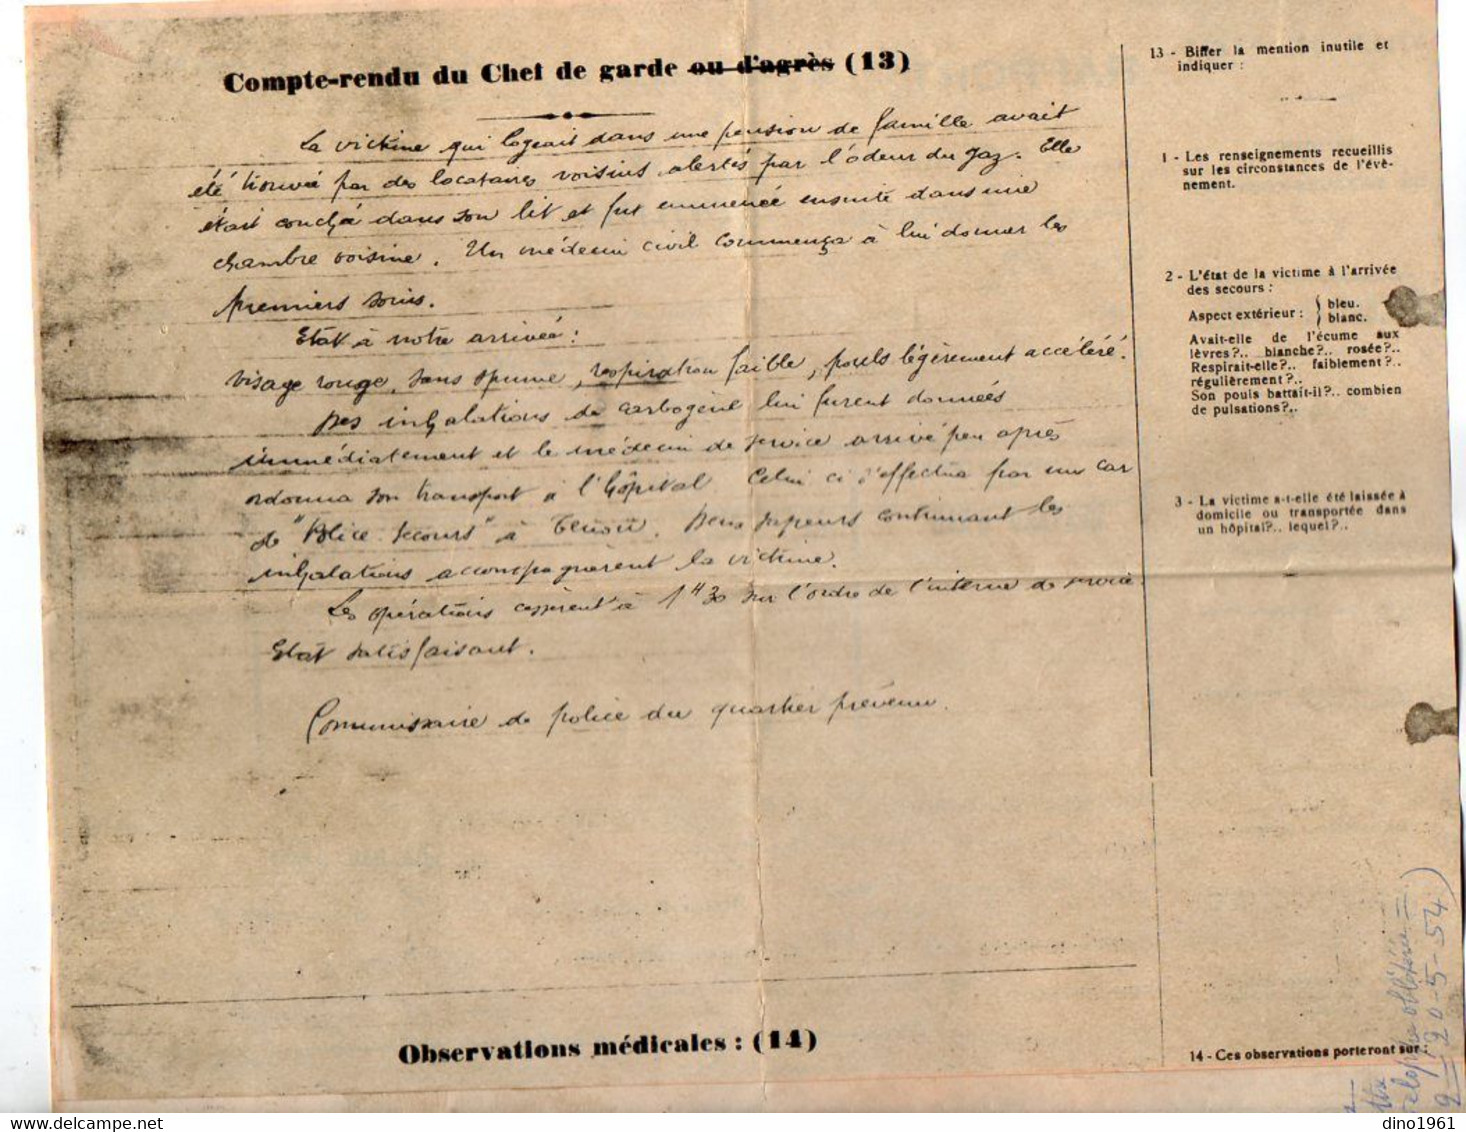 Compte-rendu du Chef de garde ou d'agrès (13)
La victime qui logeait dans une pension de famille avait
été trouvée par des locataires voisins alertés par l'odeur du gaz. Elle
était couchée dans son lit et fut emmenée ensuite dans une
chambre voisine. Un médecin civil commença à lui donner les
premiers soins.
Etat à notre arrivée :
visage rouge, sans spume, respiration faible, pouls légèrement accéléré.
Des inhalations de carbogène lui furent données
immédiatement et le médecin de service arrivé peu après
ordonna son transport à l'hôpital. Celui ci s'effectua par un car
de "Police Secours" à Tenon. Deux sapeurs continuant les
inhalations accompagnèrent la victime.
Les opérations cessèrent à 1H30 sur l'ordre de l'interne de service
Etat satisfaisant.
Commissaire de police du quartier prévenu.
Observations médicales : (14)
13 - Biffer la mention inutile et
indiquer :
1 - Les renseignements recueillis
sur les circonstances de l'évè-
nement.
2 - L'état de la victime à l'arrivée
des secours :
Aspect extérieur : } bleu.
} blanc.
Avait-elle de l'écume aux
lèvres?.. blanche?.. rosée?..
Respirait-elle?.. faiblement?..
régulièrement?..
Son pouls battait-il?.. combien
de pulsations?..
3 - La victime a-t-elle été laissée à
domicile ou transportée dans
un hôpital?.. lequel?..
14 - Ces observations porteront sur :
oblitérée
20-5-54)
dino1961